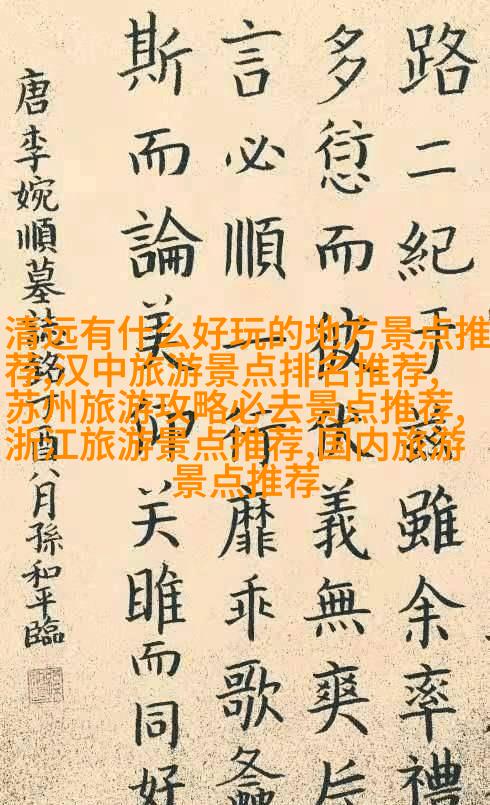 路二紀于茲雖余率禮
多愆而彼伏義無爽
言必順一行靡乖歌螽
斯而論美仰关雎而同好
唐李婉順墓誌銘丁酉八月孫和平臨
清远有什么好玩的地方景点推
荐,汉中旅游景点排名推荐,
苏州旅游攻略必去景点推荐,
浙江旅游景点推荐,国内旅游
景点推荐